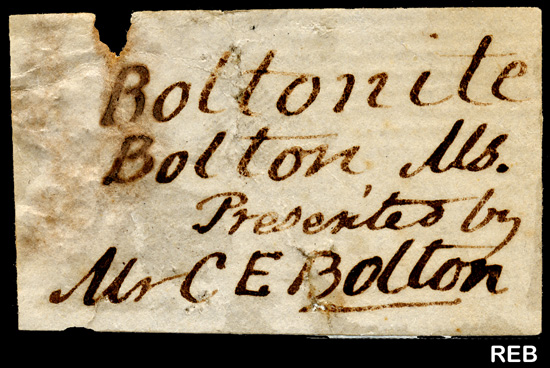 Boltonite
Bolton, Ms.
Presented by
Mr C E Bolton
REB